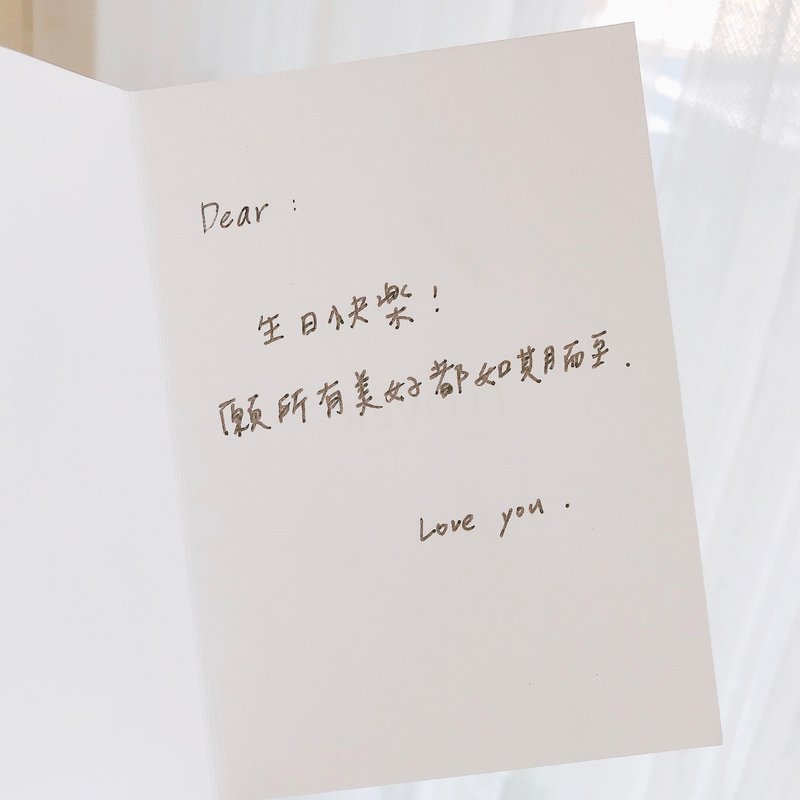 Dear :
生日快樂!
願所有美好都如期而至.
Love you.